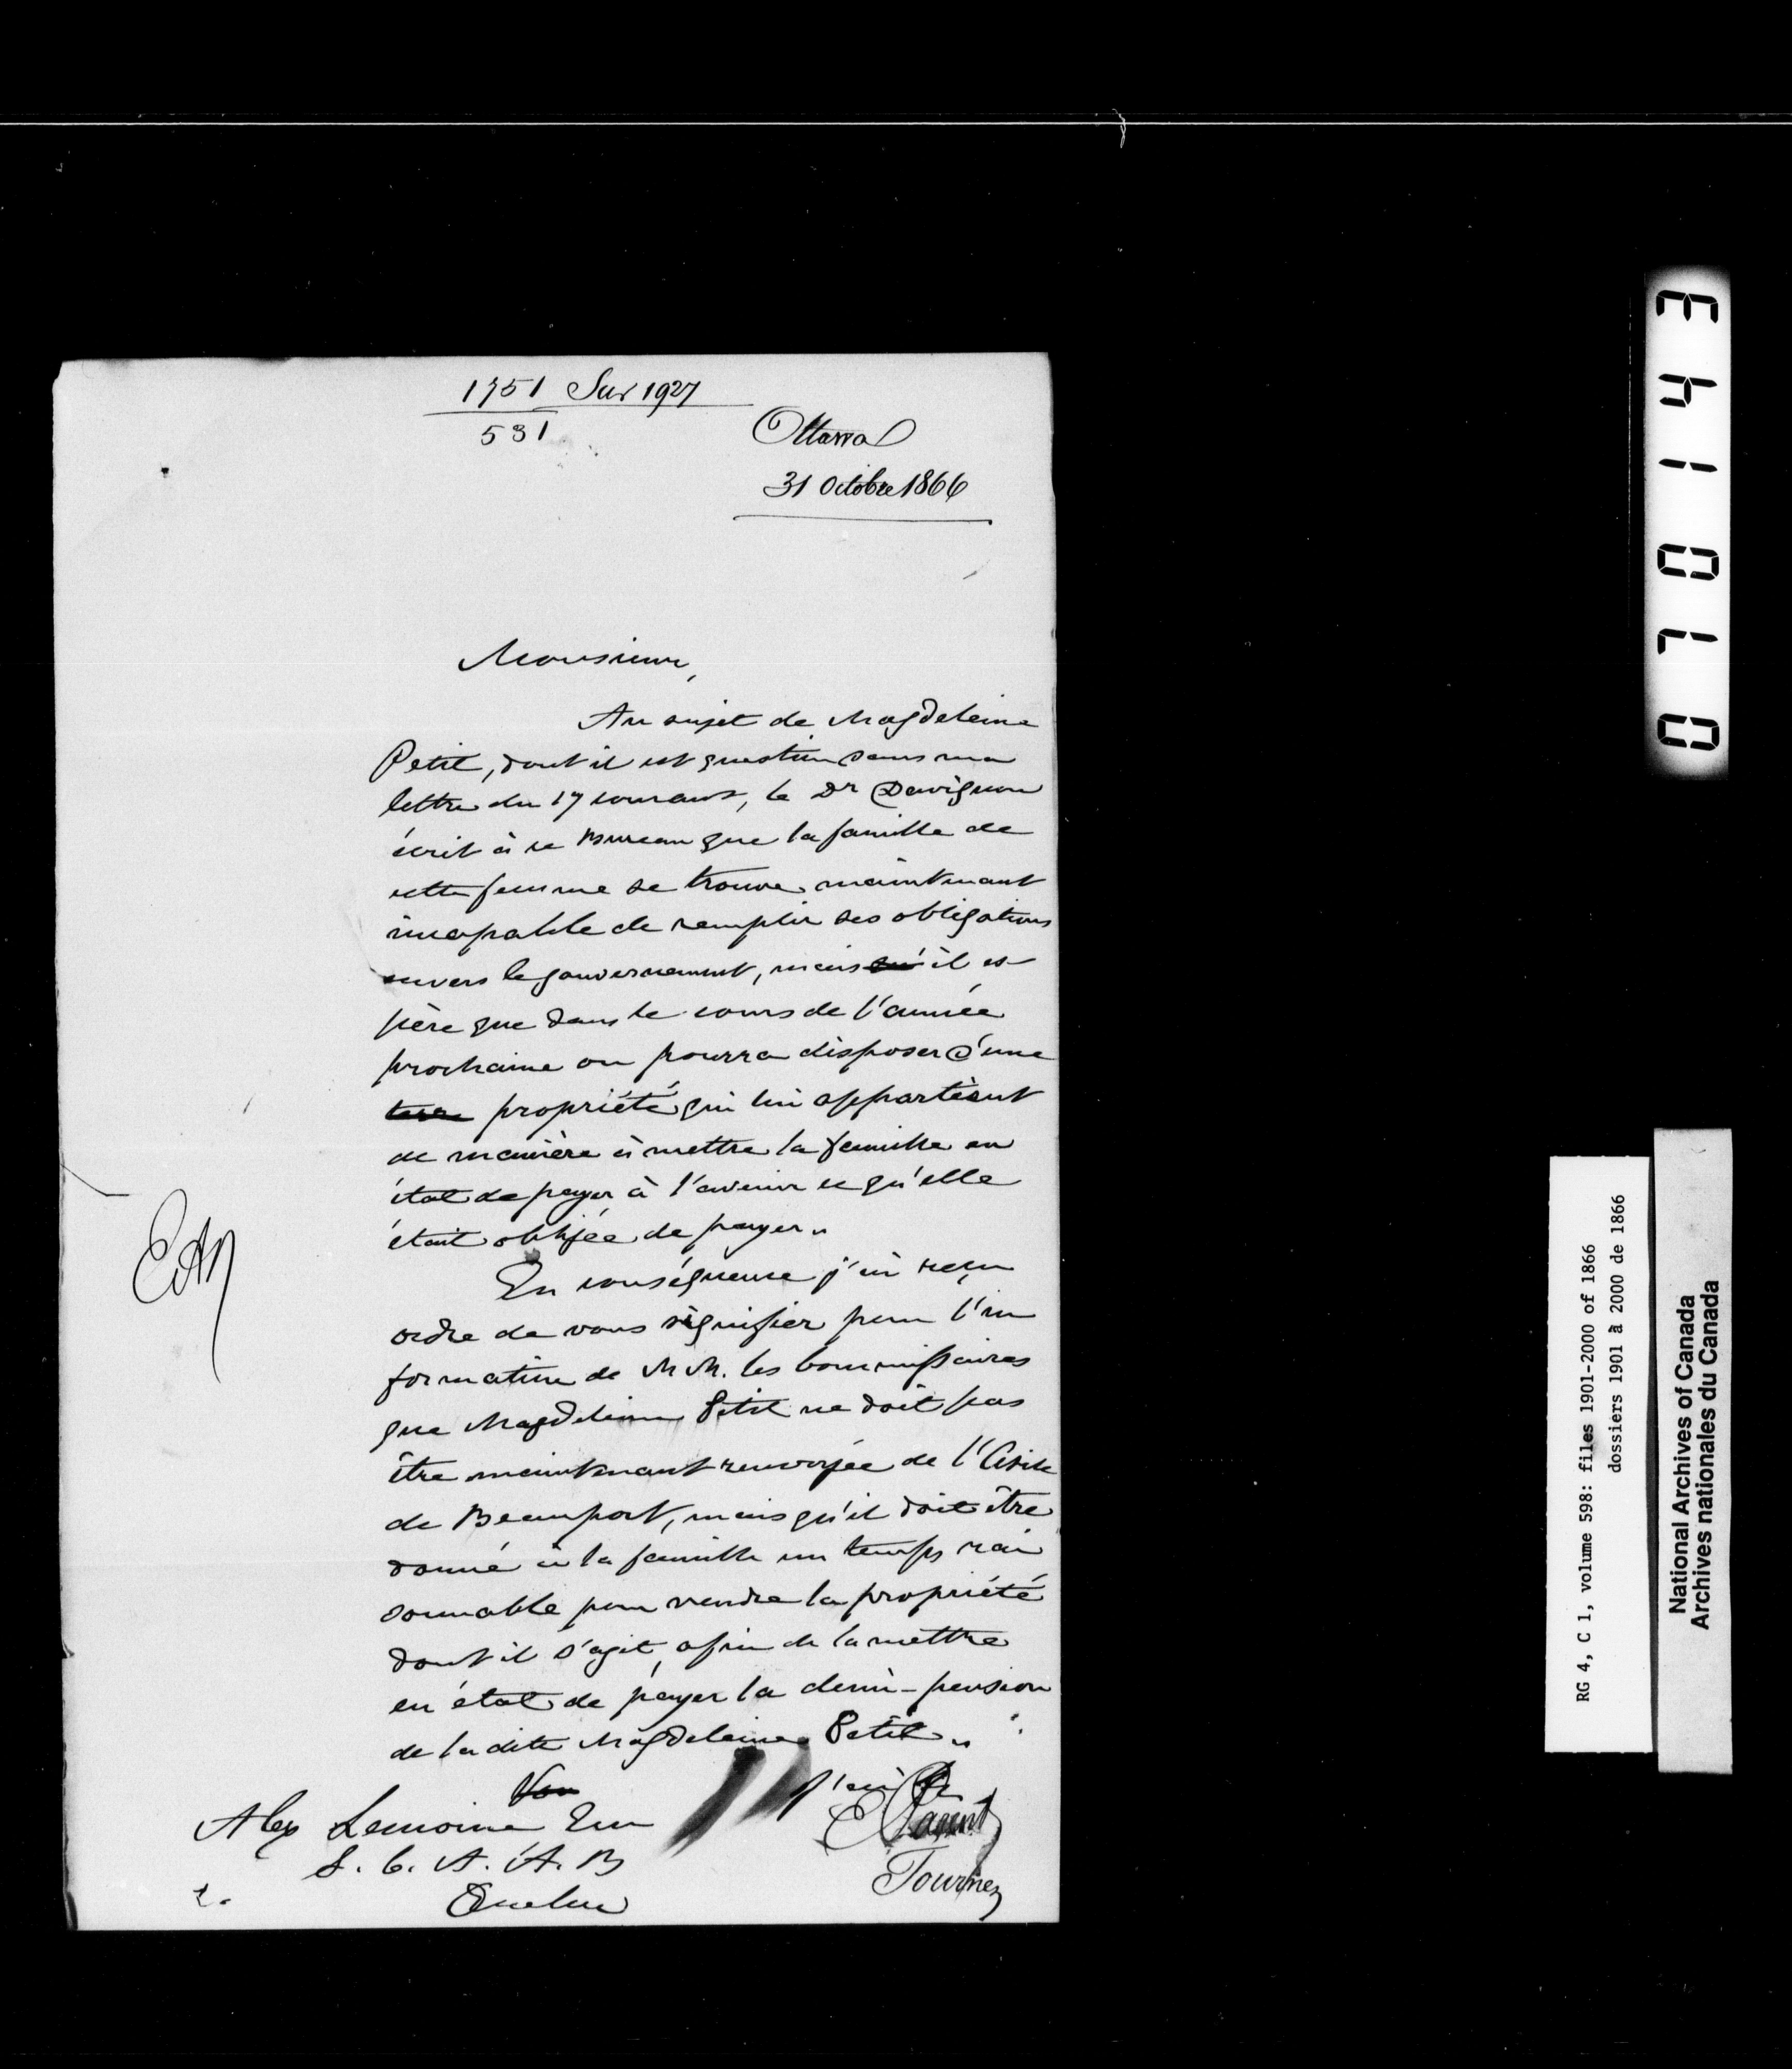 1751 Sur 1927
531
Ottawa
31 Octobre 1866
Monsieur,
Au sujet de Magdeleine
Petit, dont il est question dans ma
lettre du 17 courant, le Dr Davignon
écrit à ce Bureau que la famille de
cette femme se trouve maintenant
incapable de remplir ses obligations
envers le gouvernement, mais qu'il es-
père que dans le cours de l'année
prochaine on pourra disposer d'une
terre propriété qui lui appartient
de manière à mettre la famille en
état de payer à l'avenir ce qu'elle
était obligée de payer.
En conséquence j'ai reçu
ordre de vous signifier pour l'in
formation de MM. les Commissaires
que Magdeleine Petit ne doit pas
être maintenant renvoyée de l'Asile
de Beauport, mais qu'il doit être
donné à la famille un temps rai
sonnable pour vendre la propriété
dont il s'agit, afin de la mettre
en état de payer la demi-pension
de la dite Magdeleine Petit.
J'ai &c
E Parent
Alex Lemoine Ecr
S. C. A. A. B
Quebec
Tournez
RG 4, C 1, volume 598: files 1901-2000 of 1866
dossiers 1901 à 2000 de 1866
National Archives of Canada
Archives nationales du Canada
070143